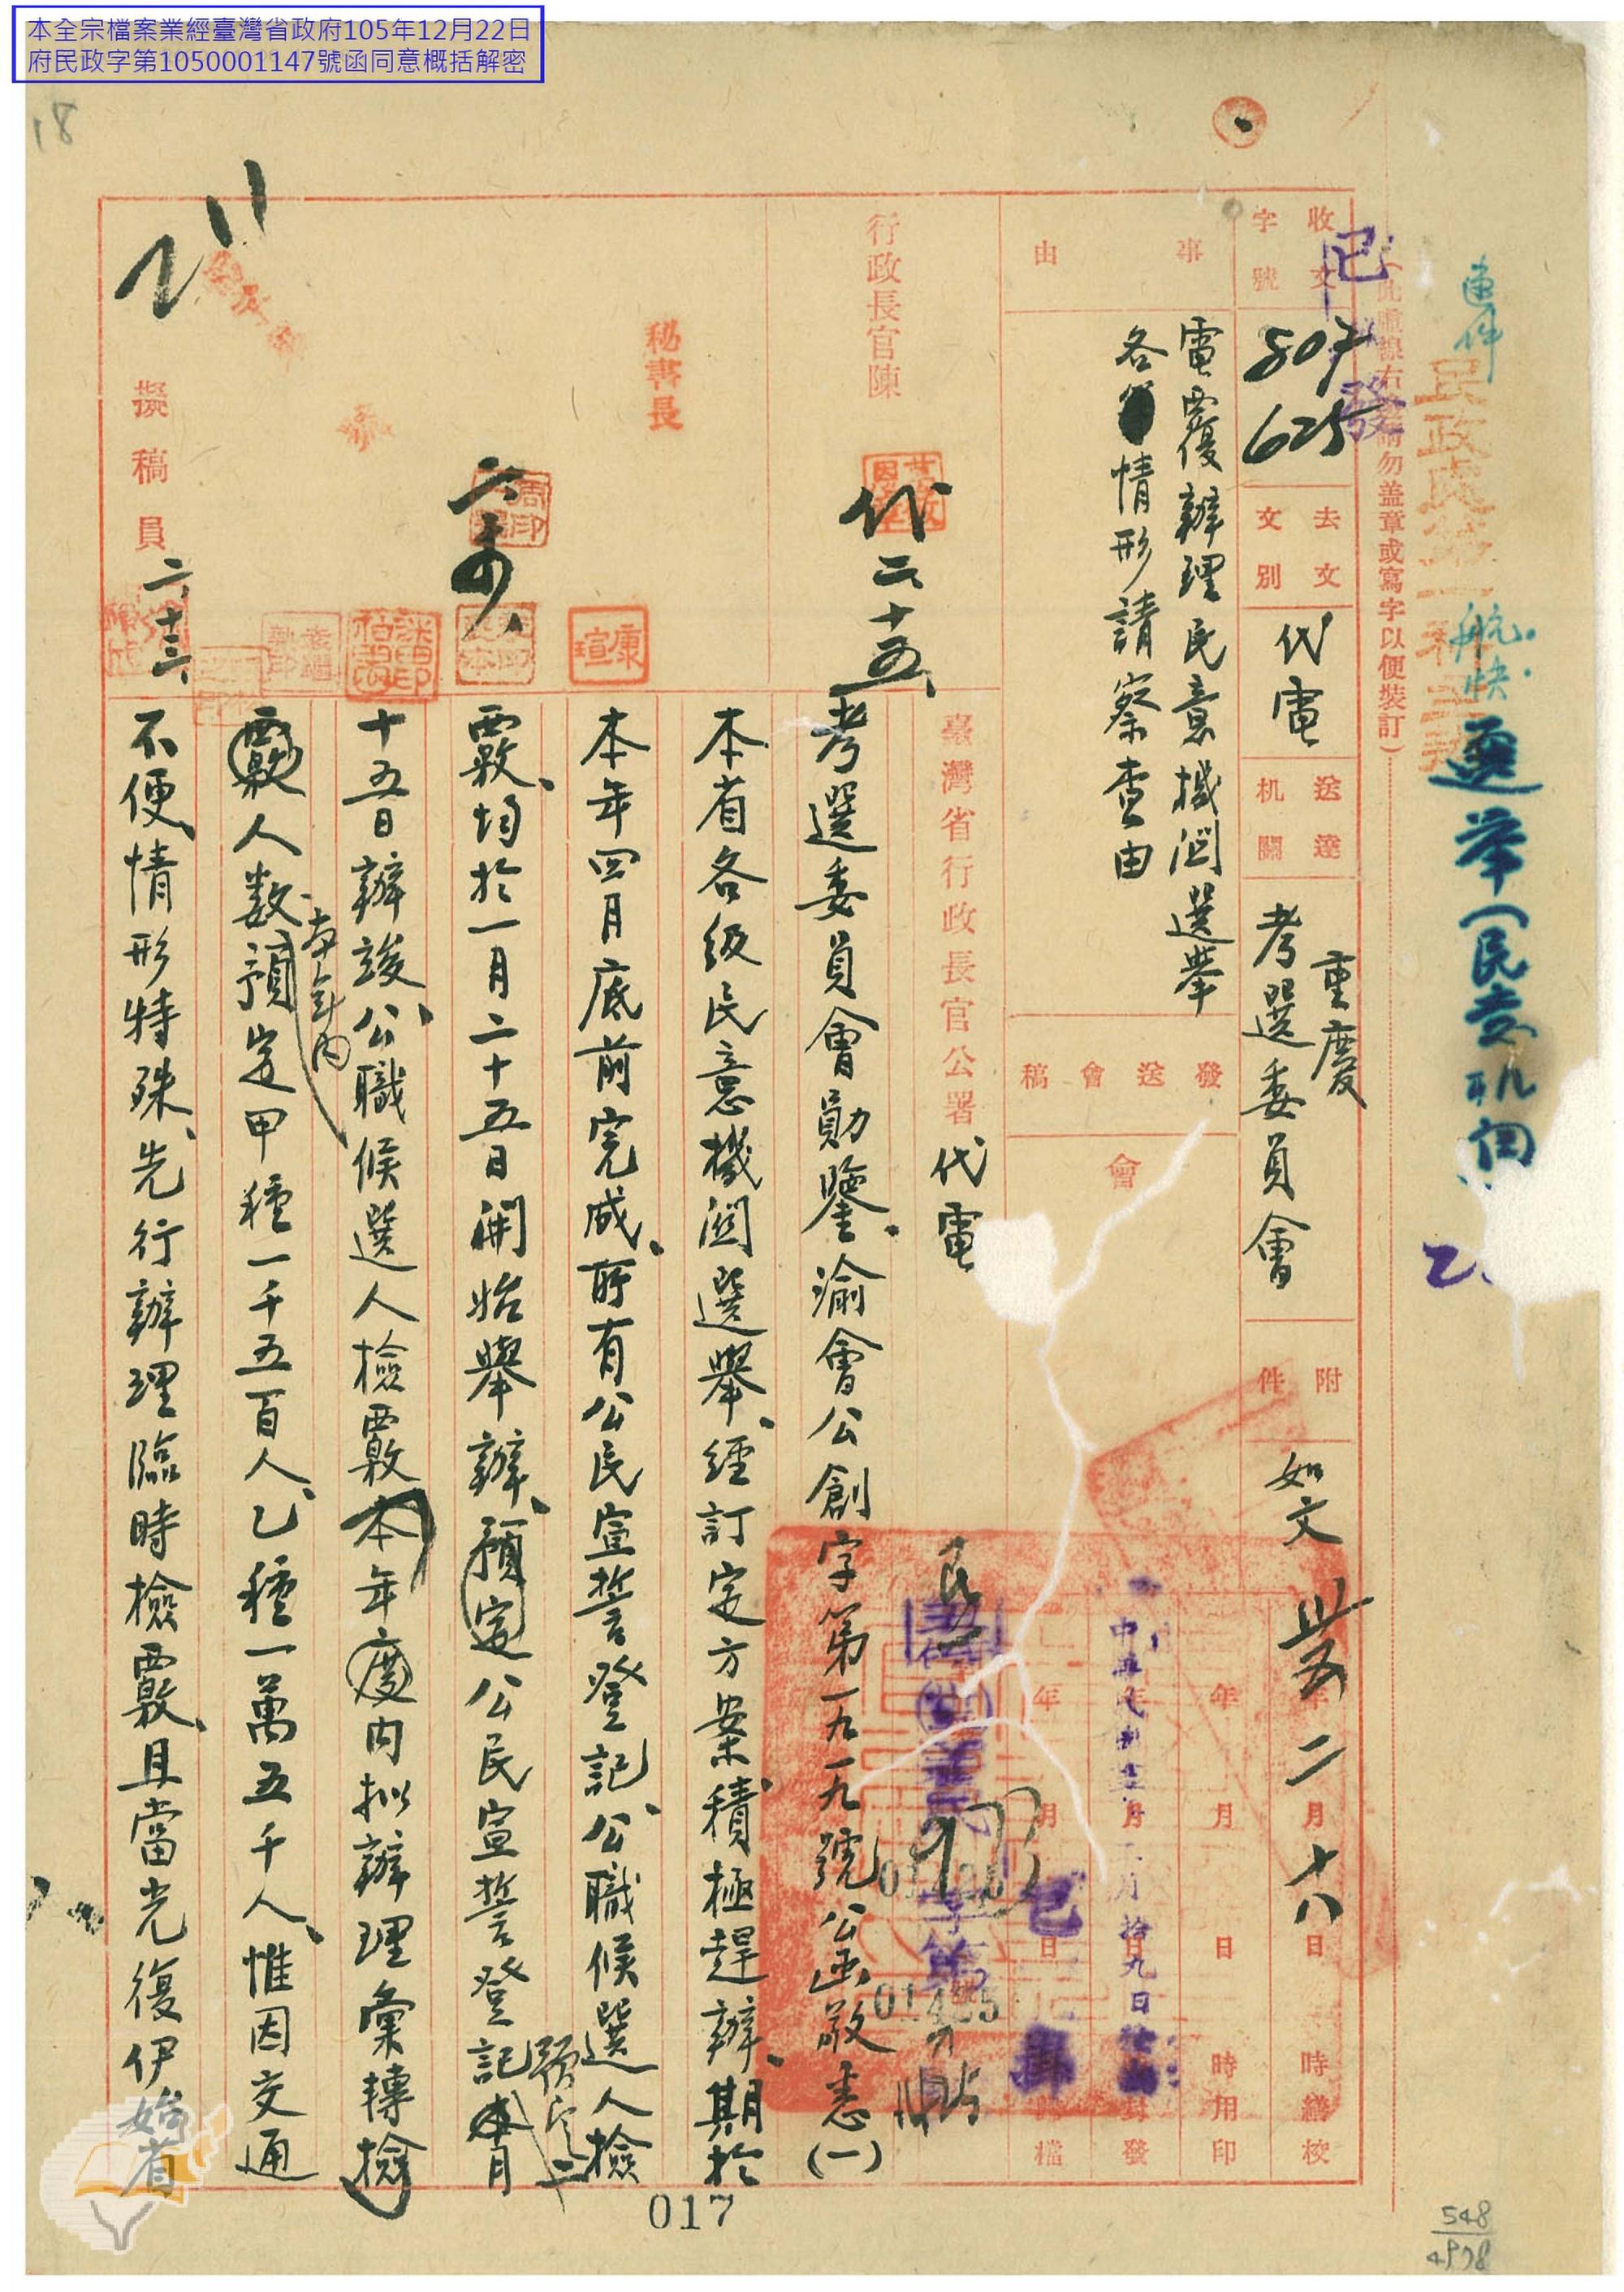 本全宗檔案業經臺灣省政府105年12月22日
府民政字第1050001147號函同意概括解密
18
速件
航快
選舉(民意机関
民政處第一科
請勿盖章或寫字以便裝訂)
已發
收文
字號
807
625
去文
文別
代電
送達
机關
重慶
考選委員會
附件
如文
卅五年二月十八日 時繕校
年 月 日 時用印
拾九日封發
年 月 日 歸檔
事由
電覆辦理民意機関選舉
各情形請察查由
發送會稿
會
行政長官陳
代
二十五
秘書長
康瑄
擬稿員
二、十三、
臺灣省行政長官公署代電
民一
字第
01425
考選委員會勛鑒、渝會公創字第一九一九號公函敬悉(一)
本省各級民意機関選舉、經訂定方案積極趕辦、期於
本年四月底前完成、所有公民宣誓登記、公職候選人檢
覈、均於一月二十五日開始舉辦、預定公民宣誓登記預定二月
十五日辦竣、公職候選人檢覈本年度內拟辦理彙轉檢
覈人数、本年內預定甲種一千五百人、乙種一萬五千人、惟因交通
不便、情形特殊、先行辦理臨時檢覈、且當光復伊始省
017
548
4978